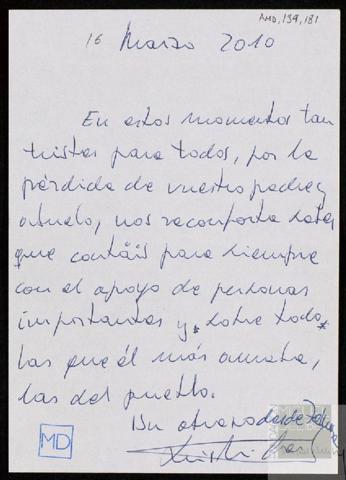 AMD, 139, 181
16 Marzo 2010
En estos momentos tan
tristes para todos, por la
pérdida de vuestro padre y
abuelo, nos reconforta saber
que contáis para siempre
con el apoyo de personas
importantes y, sobre todo,
las que él más amaba,
las del pueblo.
Un abrazo desde
MD